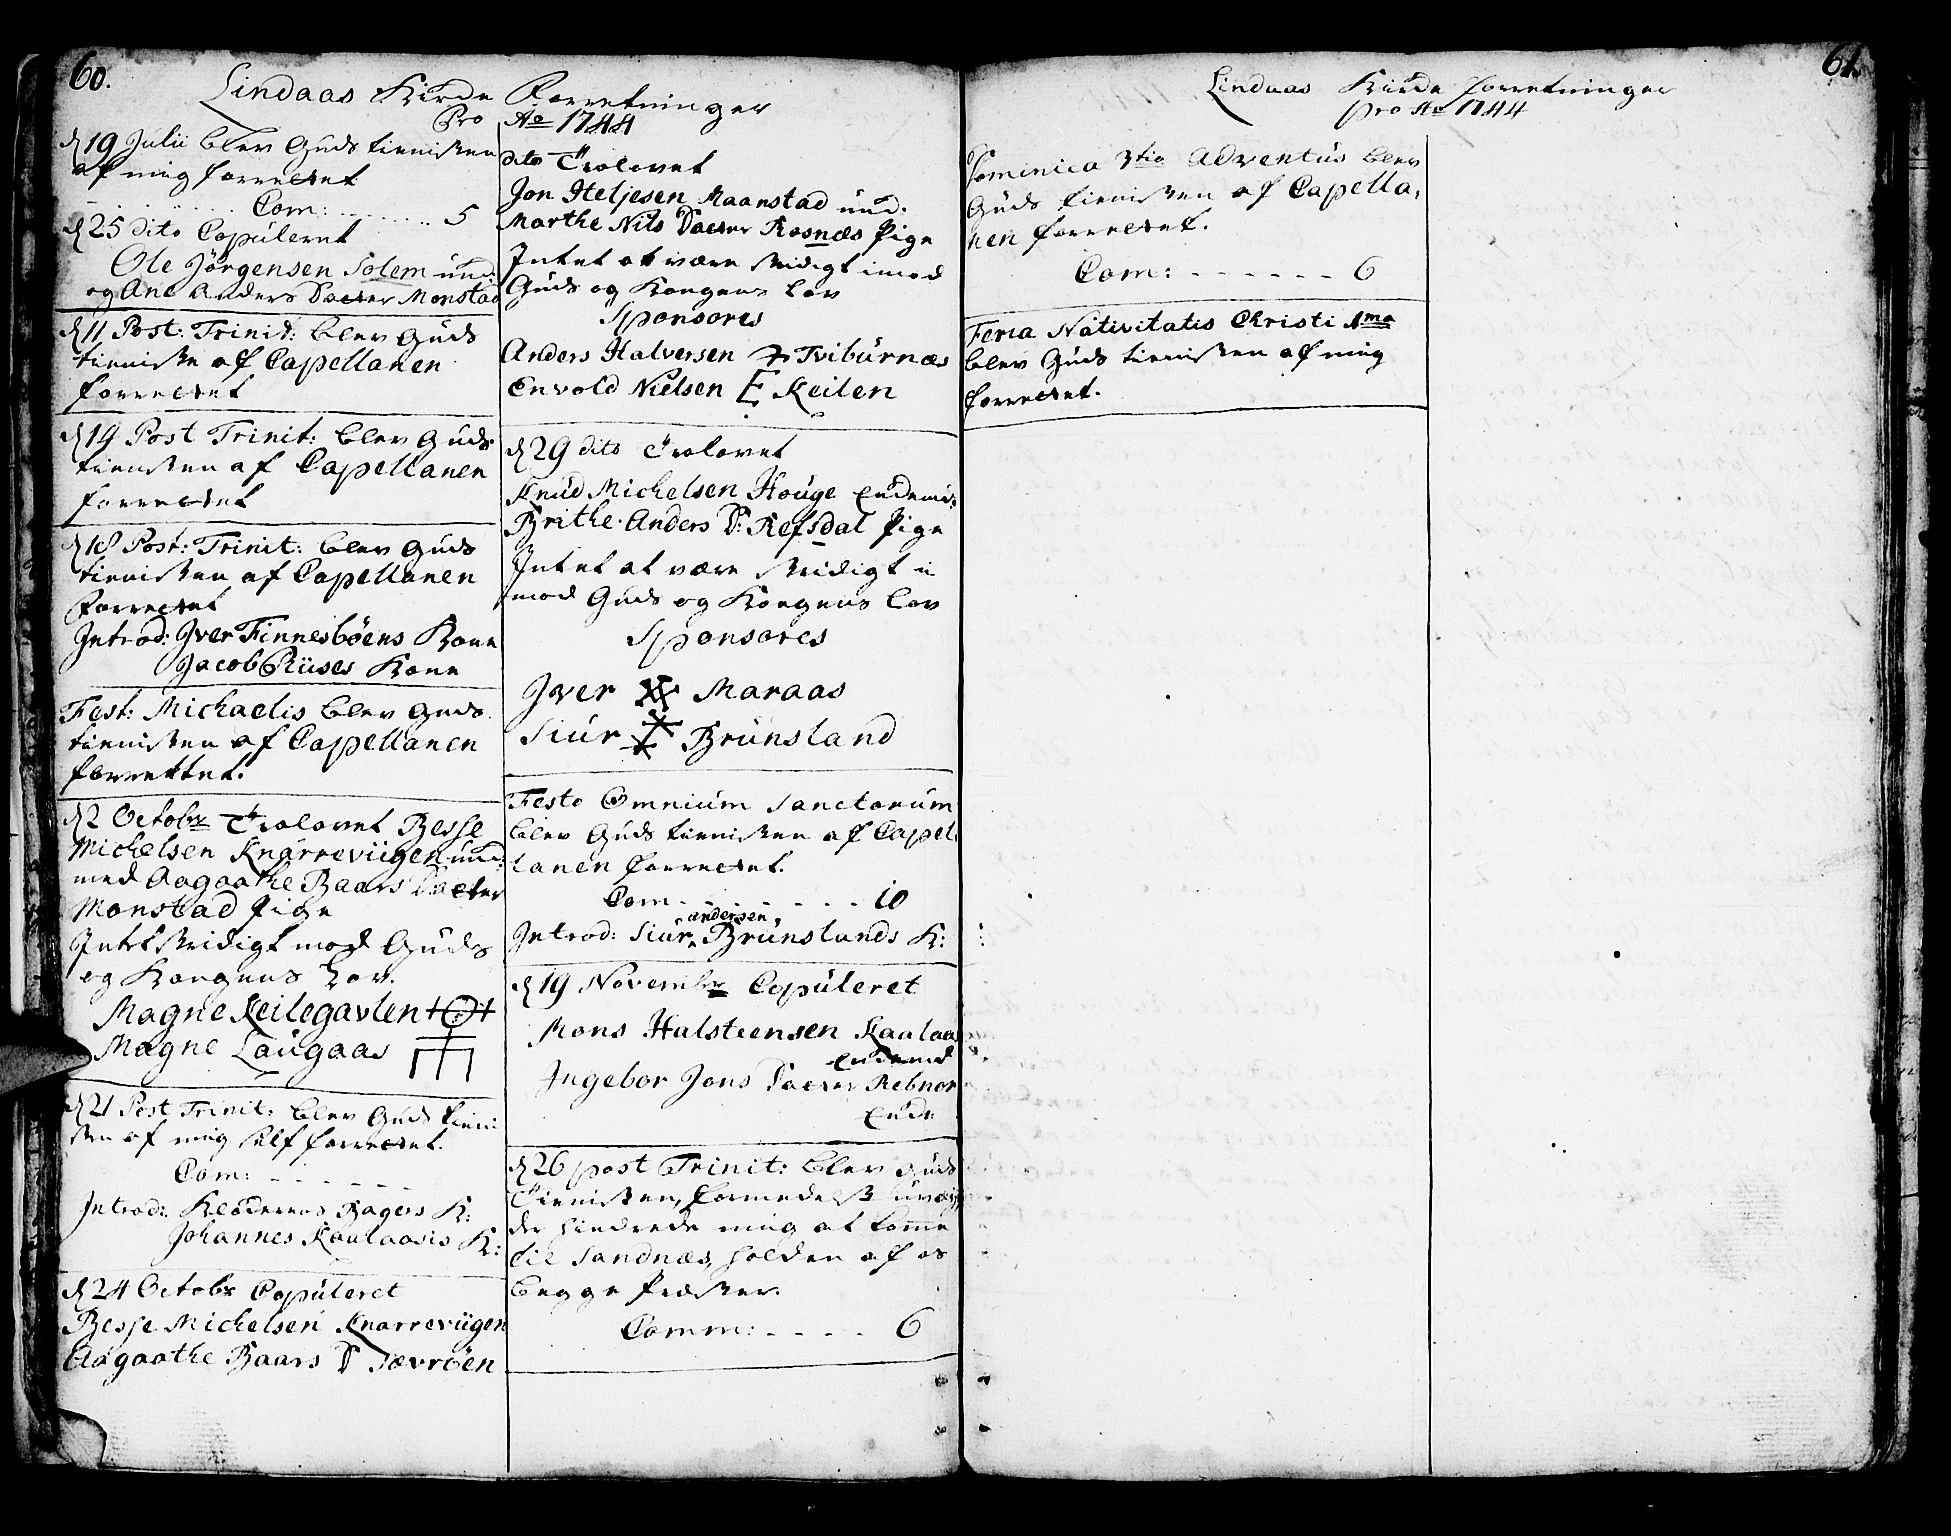 60.
Lindaas Kirche Forretninger
Pro Ao 1744
d 19 Julii blev Guds tienisten
af mig forrettet
Com: 5
d 25 dito Copuleret
Ole Jörgensen Solem und:
og Ane Anders Datter Monstad
d 11 Post: Trinit: blev Guds
tieniste af Capellanen
forrettet
d 14 Post Trinit: blev Guds
tienisten af Capellanen
forrettet
d 18 Post: Trinit: blev Guds
tienisten af Capellanen
forrettet
Introd: Jver Finnesböens Kone
Jacob Riises Kone
Fest: Michaelis blev Guds
tienisten af Capellanen
forrettet.
d 2 Octobr Trolovet Besse
Michelsen Knarreviigen und:
med Aagaathe Baars Datter
Monstad Pige
Intet stridigt mod Guds
og Kongens Lov.
Magne Keilegavlen
Magne Laugaas
d 21 Post Trinit: blev Guds tieni:
sten af mig self forrettet.
Com:
Introd: Klöckerens Bagers K:
Johannes Kaalaasis K:
d 24 Octobr Copuleret
Besse Michelsen Knarreviigen
Aagaathe Baars D Sævröen
dito Trolovet
Jon Heljesen Maanstad und:
Marthe Nils Datter Rosnæs Pige
Intet at være stridigt imod
Guds og Kongens Lov
Sponsores
Anders Halversen Tviburnæs
Envold Nielsen E Keilen
d 29 dito Trolovet
Knud Michelsen Houge Enkem:
Brithe Anders D: Refsdal Pige
Intet at være stridigt i
mod Guds og Kongens Lov
Sponsores
Jver Maraas
Siur Brunsland
Festo Omnium Sanctorum
blev Guds tienisten af Capel
lanen forrettet.
Com 10
andersen
Introd: Siur Brunslands K:
d 19 Novembr Copuleret
Mons Halsteensen Kaalaas
Enkemd
Ingebor Jons Datter Rebnor
Enke
d 26 post Trinit: blev Guds
Tienisten, formedelst uveyr
der hindrede mig at komme
til Sandnæs, holden af os
begge Præster.
Comm: 6
61.
Lindaas Kirche forretninger
pro Ao 1744
Dominica 3tia Adventus blev
Guds tienisten af Capella,
nen forrettet.
Com: 6
Feria Nativitatis Christi 1ma
blev Guds tienisten af mig
forrettet.